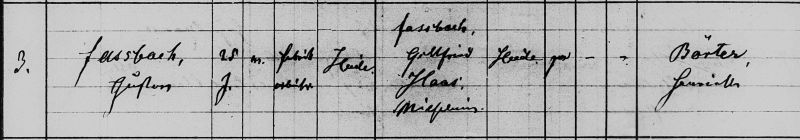 3.
Fassbach,
Gustav
25
J.
m.
Fabrik
arbeiter
Heide
Fassbach,
Gottfried
Haas,
Wilhelmine
Heide
- -
Börter,
Henriette